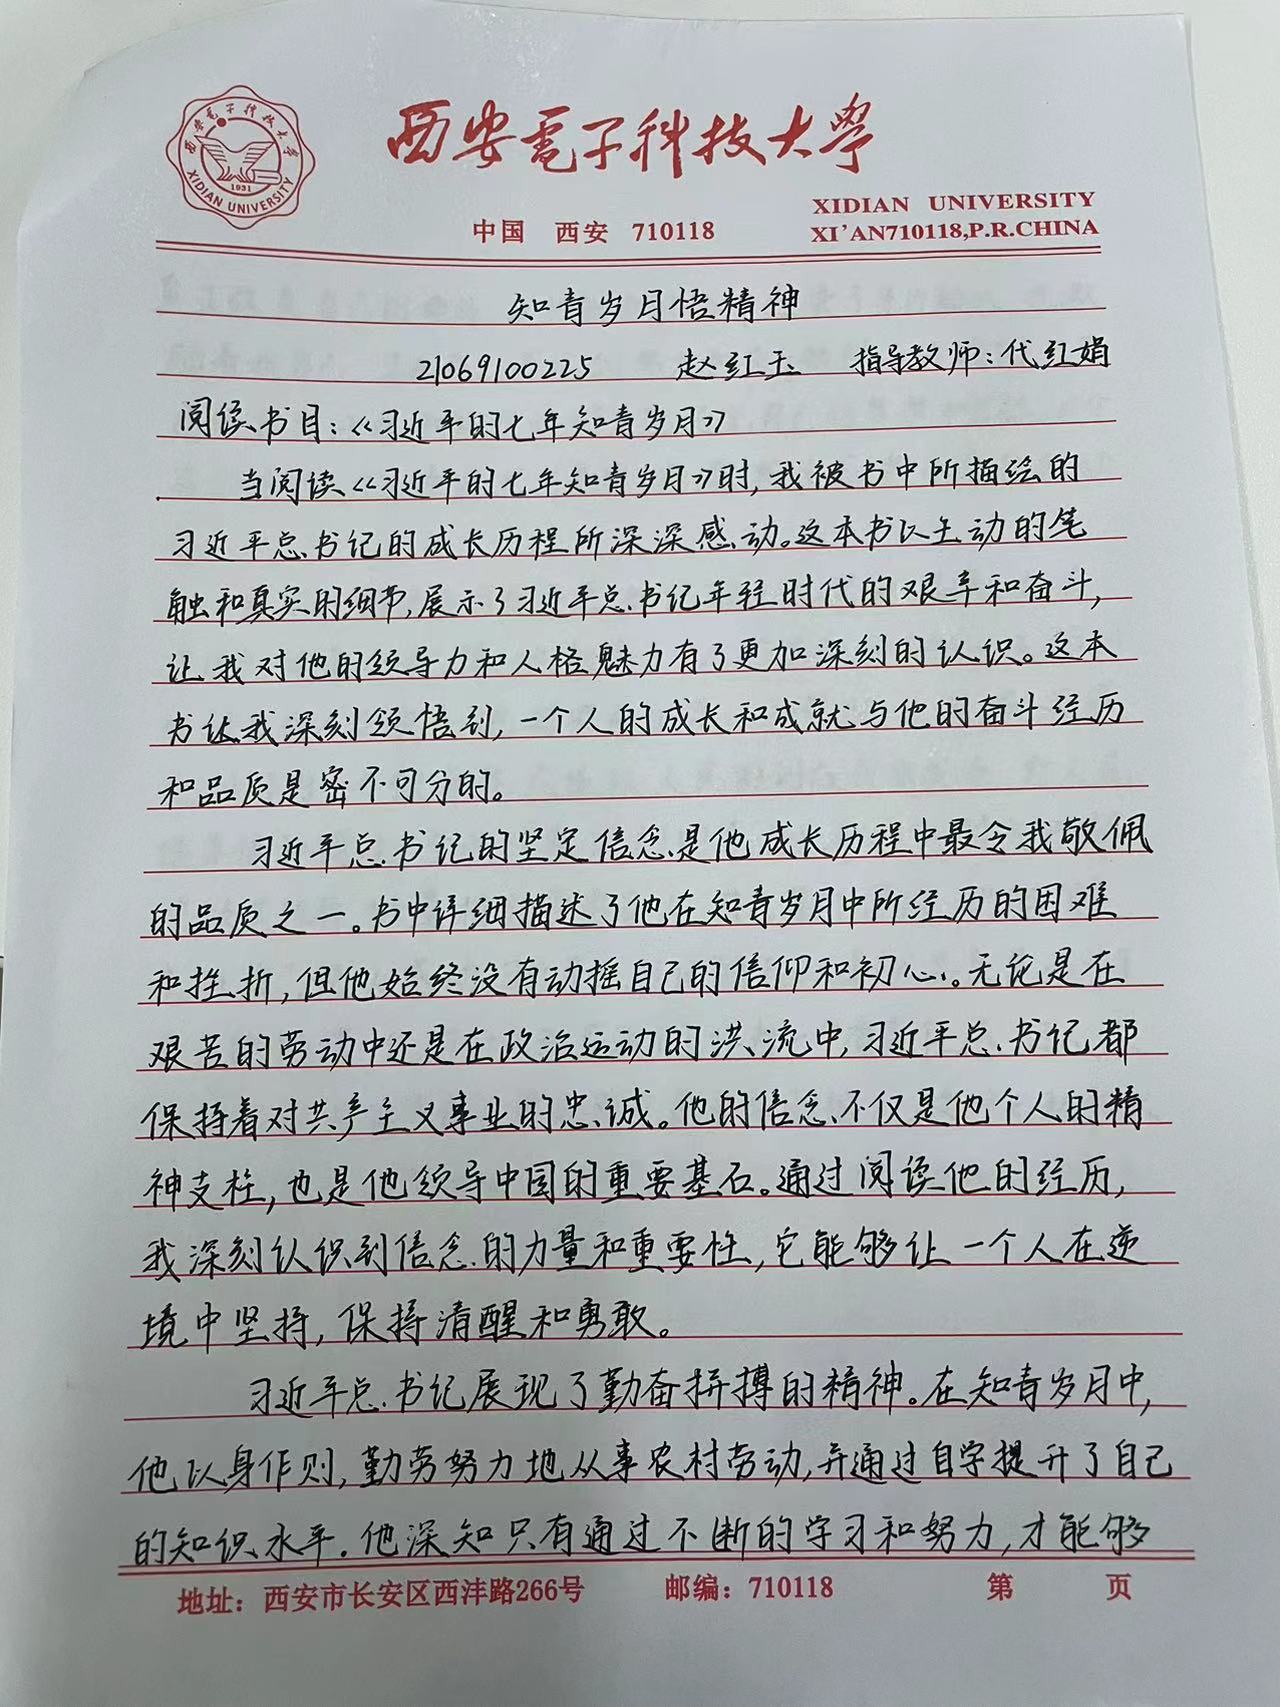 西安電子科技大學
XIDIAN UNIVERSITY
1931
西安電子科技大學
XIDIAN UNIVERSITY
中国 西安 710118
XI'AN710118,P.R.CHINA
知青岁月悟精神
21069100225 赵红玉 指导教师：代红娟
阅读书目：《习近平的七年知青岁月》
当阅读《习近平的七年知青岁月》时，我被书中所描绘的
习近平总书记的成长历程所深深感动。这本书以生动的笔
触和真实的细节，展示了习近平总书记年轻时代的艰辛和奋斗，
让我对他的领导力和人格魅力有了更加深刻的认识。这本
书让我深刻领悟到，一个人的成长和成就与他的奋斗经历
和品质是密不可分的。
习近平总书记的坚定信念是他成长历程中最令我敬佩
的品质之一。书中详细描述了他在知青岁月中所经历的困难
和挫折，但他始终没有动摇自己的信仰和初心。无论是在
艰苦的劳动中还是在政治运动的洪流中，习近平总书记都
保持着对共产主义事业的忠诚。他的信念不仅是他个人的精
神支柱，也是他领导中国的重要基石。通过阅读他的经历，
我深刻认识到信念的力量和重要性，它能够让一个人在逆
境中坚持，保持清醒和勇敢。
习近平总书记展现了勤奋拼搏的精神。在知青岁月中，
他以身作则，勤劳努力地从事农村劳动，并通过自学提升了自己
的知识水平。他深知只有通过不断的学习和努力，才能够
地址：西安市长安区西沣路266号 邮编：710118 第 页